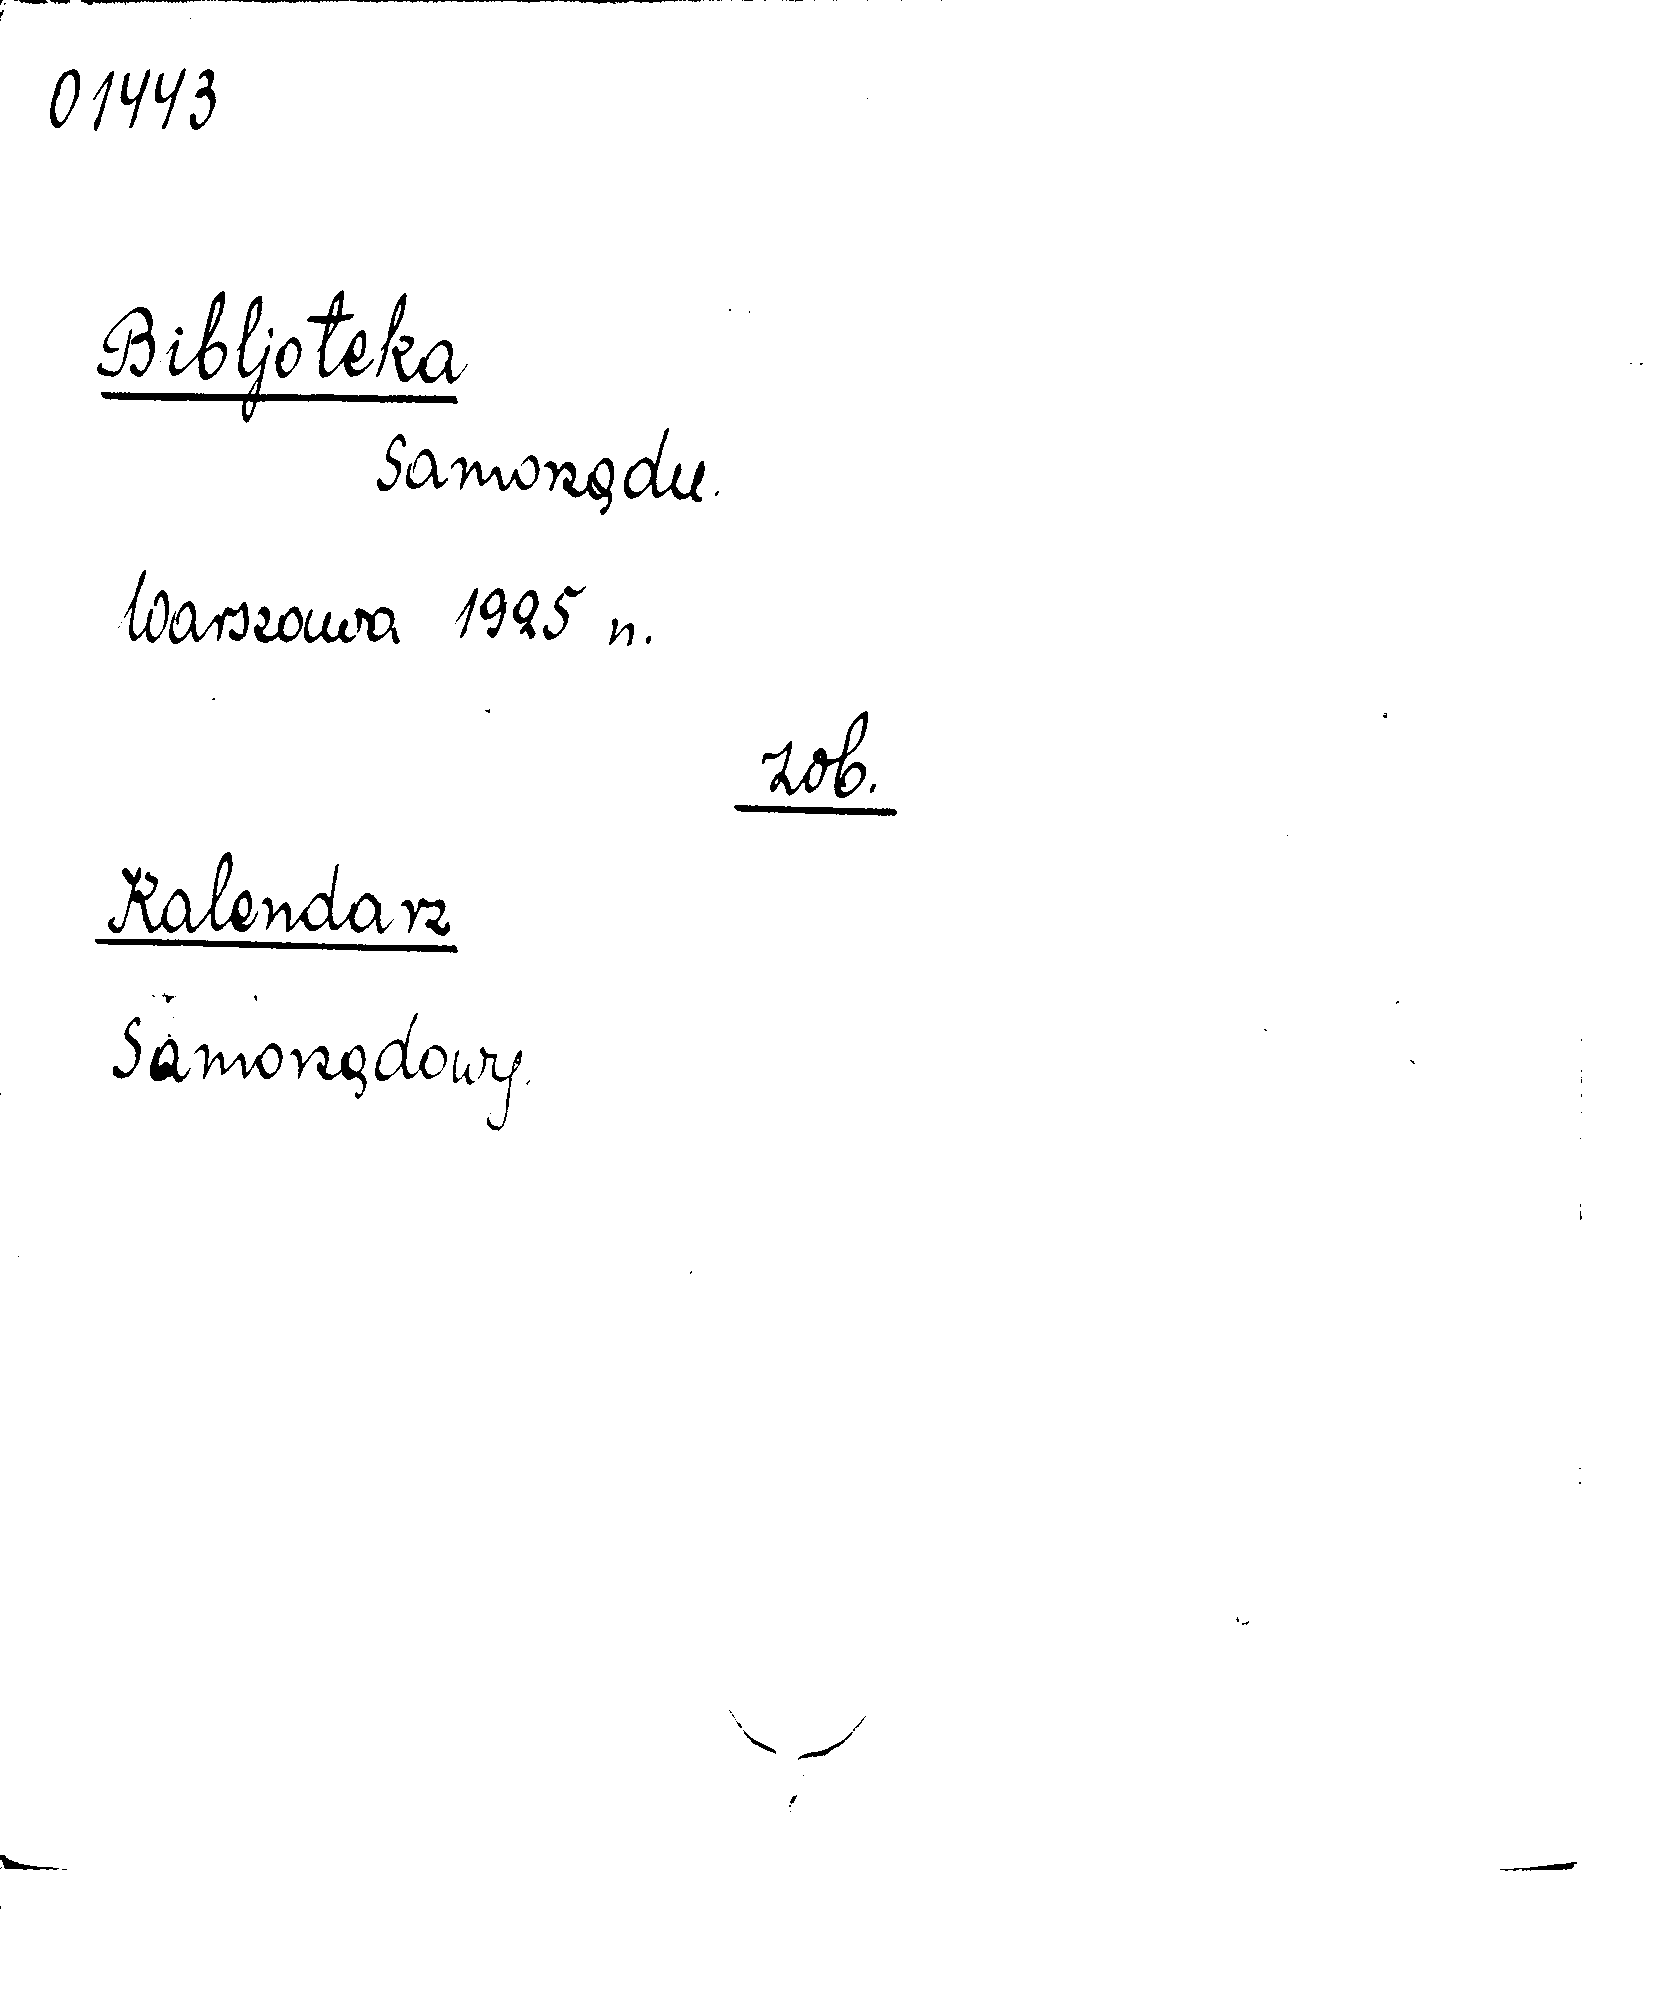 01443
Bibljoteka
Samorządu.
Warszawa 1925 n.
zob.
Kalendarz
Samorządowy.